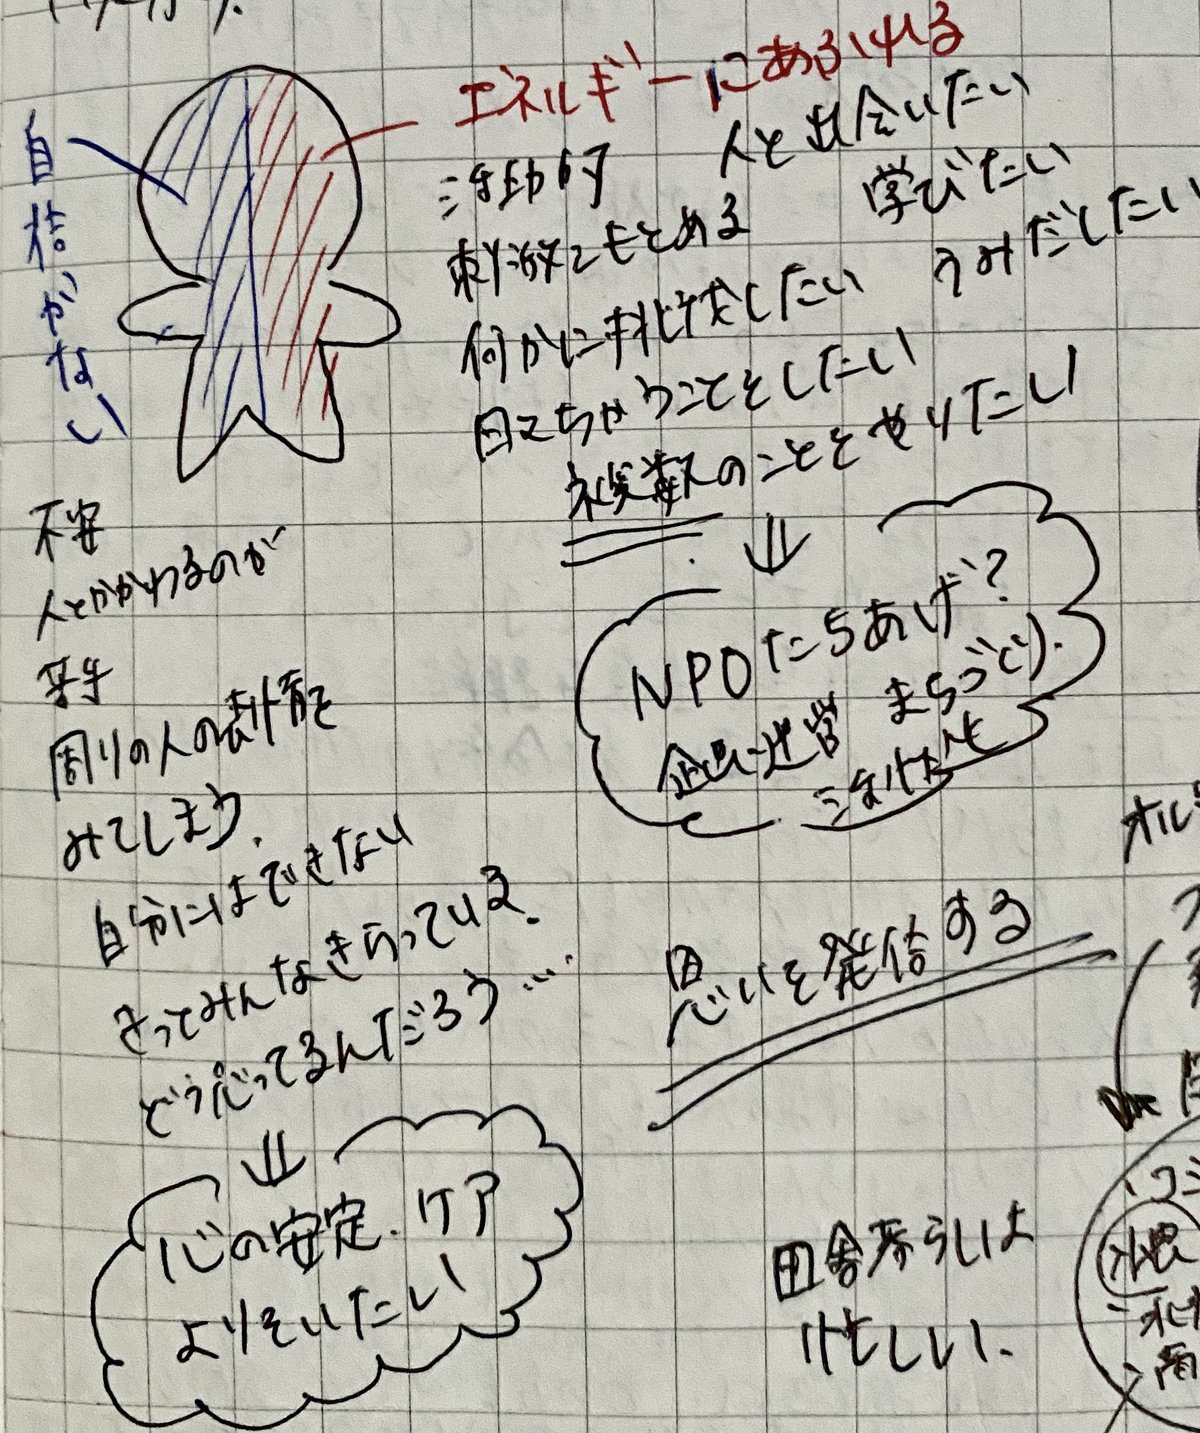 エネルギーにあふれる
自信がない
活動的
人と出会いたい
刺激をもとめる
学びたい
何かに挑戦したい
うみだしたい
目立ちゃうことをしたい
複数のことをやりたい
NPOたちあげ?
企画運営 まちづくり.
活性化
不安
人とかかわるのが
苦手
周りの人の表情を
みてしまう.
自分にはできない
きってみんなきらっている.
どう思ってるんだろう…
心の安定.ケア
よりそいたい
思いを発信する
田舎暮らしは
忙しい.
オル